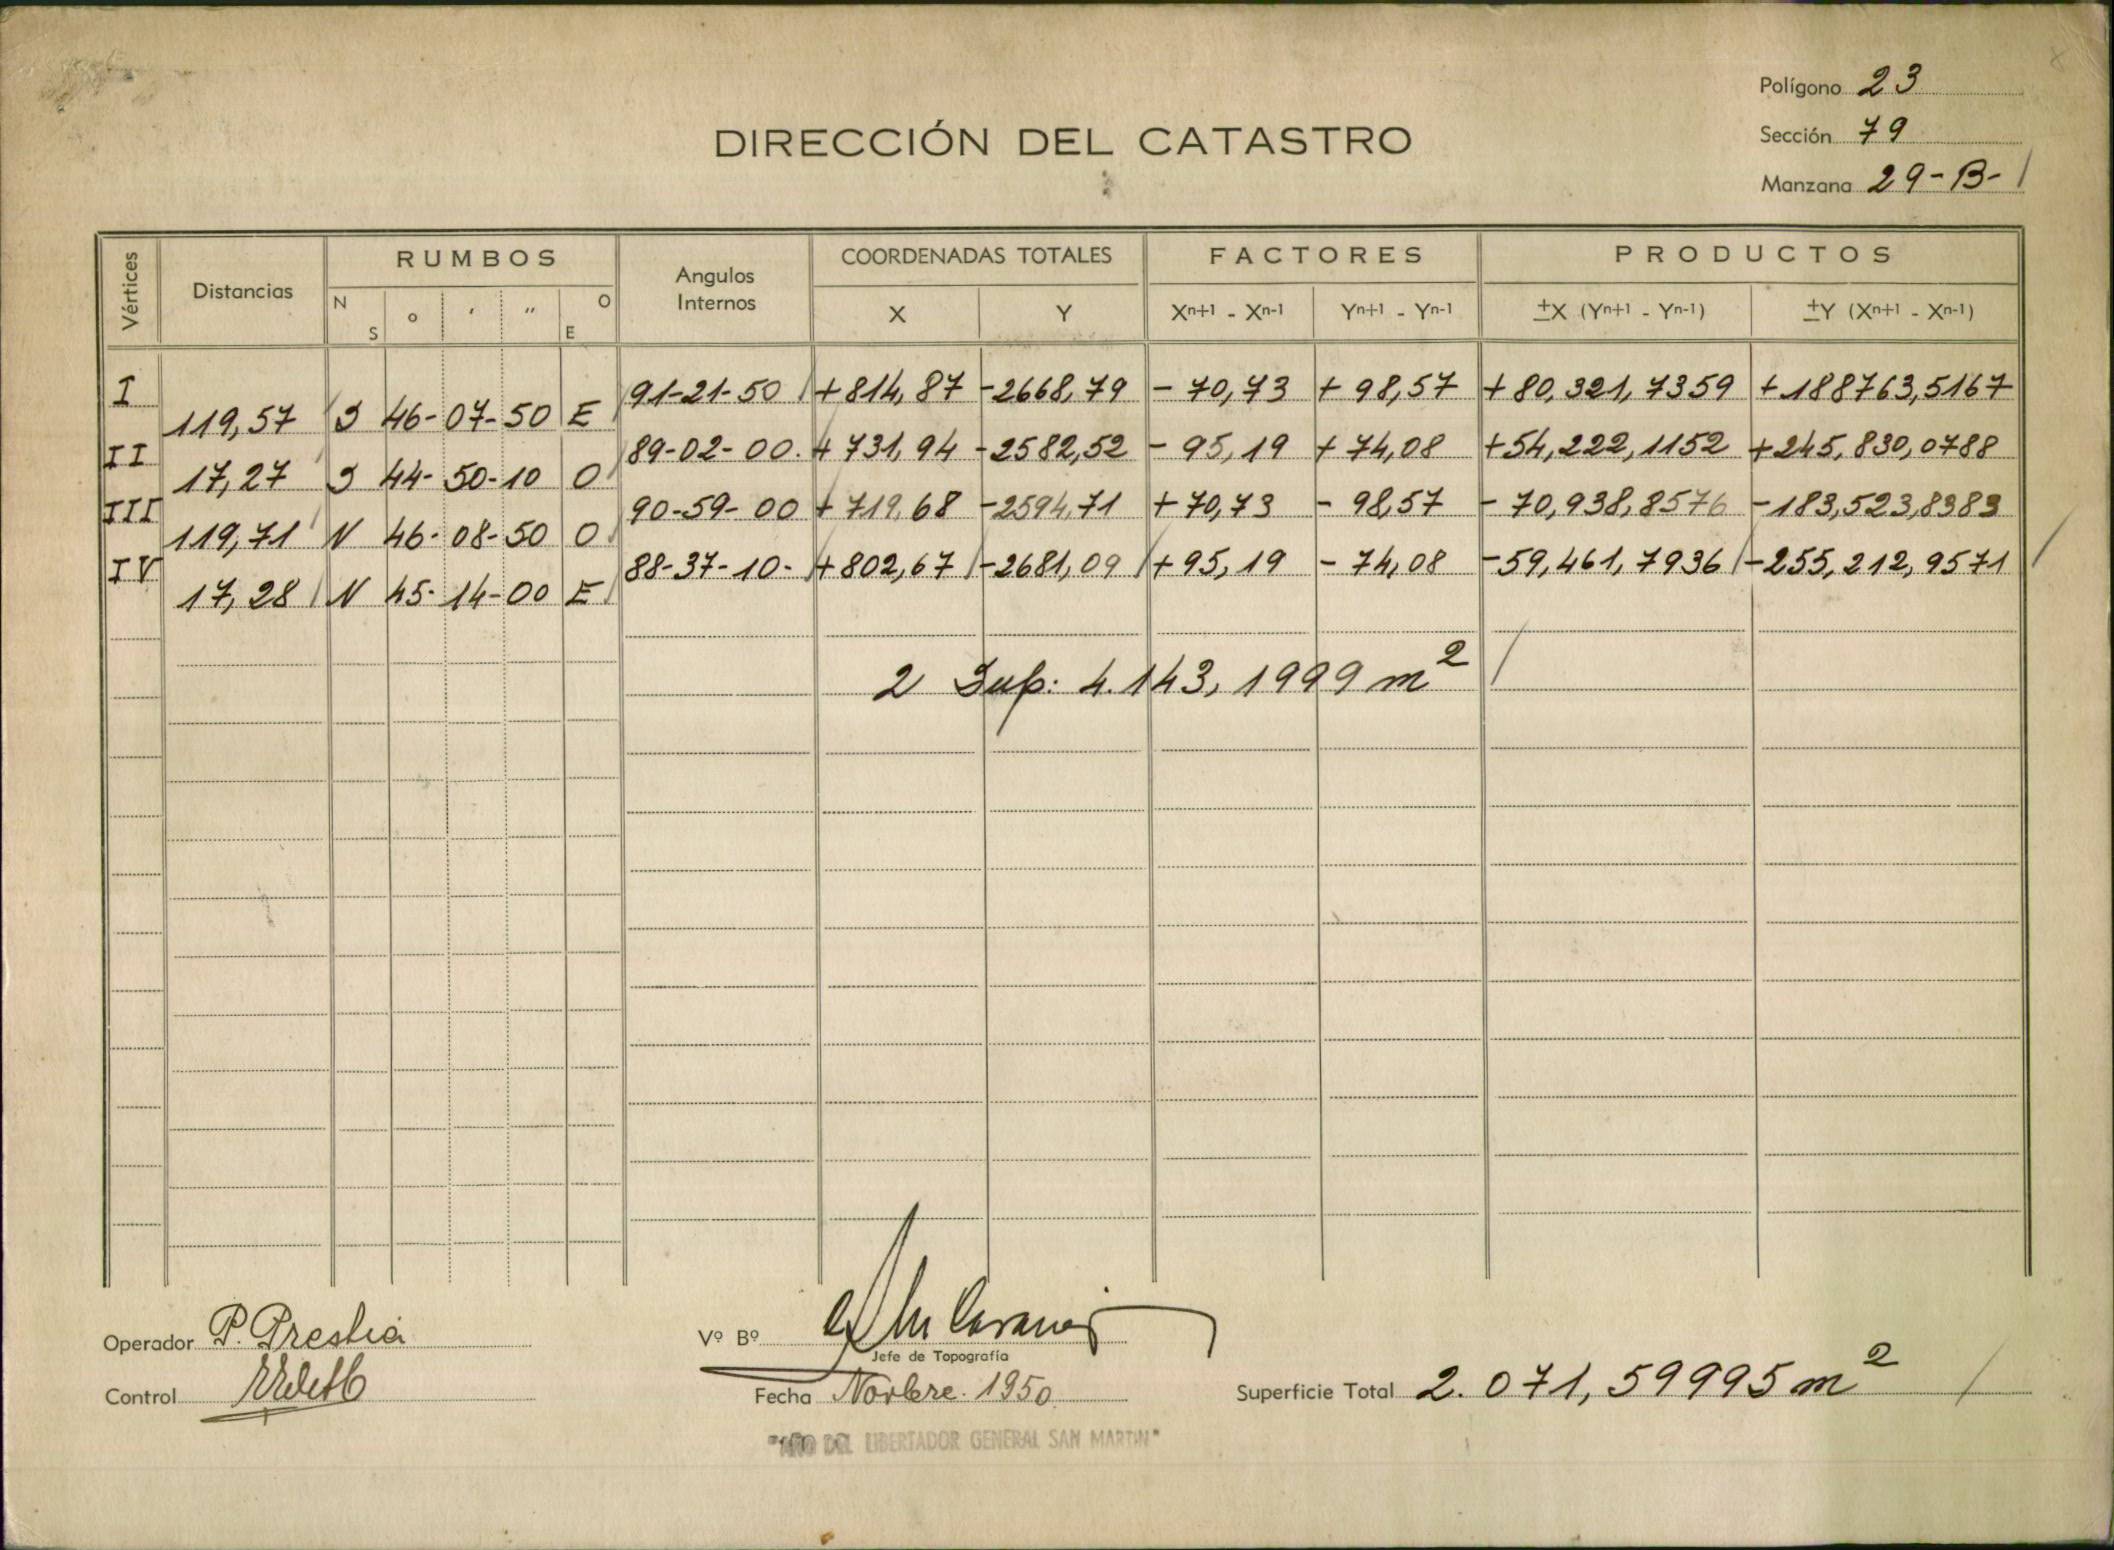 Polígono 23
Sección 79
Manzana 29-B-
DIRECCIÓN DEL CATASTRO
Vértices Distancias RUMBOS Angulos Internos COORDENADAS TOTALES FACTORES PRODUCTOS
N S o ' " O E X Y Xn+1 - Xn-1 Yn+1 - Yn-1 ±X (Yn+1 - Yn-1) ±Y (Xn+1 - Xn-1)
I 91-21-50 +814,87 -2668,79 - 70,73 + 98,57 +80,321,7359 +188763,5167
119,57 S 46-07-50 E
II 89-02-00. + 731,94 -2582,52 - 95,19 + 74,08 +54,222,1152 +245,830,0788
17,27 S 44-50-10 O
III 90-59-00 + 719,68 -2594,71 + 70,73 - 98,57 - 70,938,8576 -183,523,8383
119,71 N 46-08-50 O
IV 88-37-10- +802,67 -2681,09 +95,19 - 74,08 -59,461,7936 -255,212,9571
17,28 N 45-14-00 E
2 Sup: 4.143,1999 m²
Operador P. Prestia
Vº Bº
Jefe de Topografía
Control
Fecha Novbre. 1950
Superficie Total 2.071,59995 m²
"AÑO DEL LIBERTADOR GENERAL SAN MARTIN"